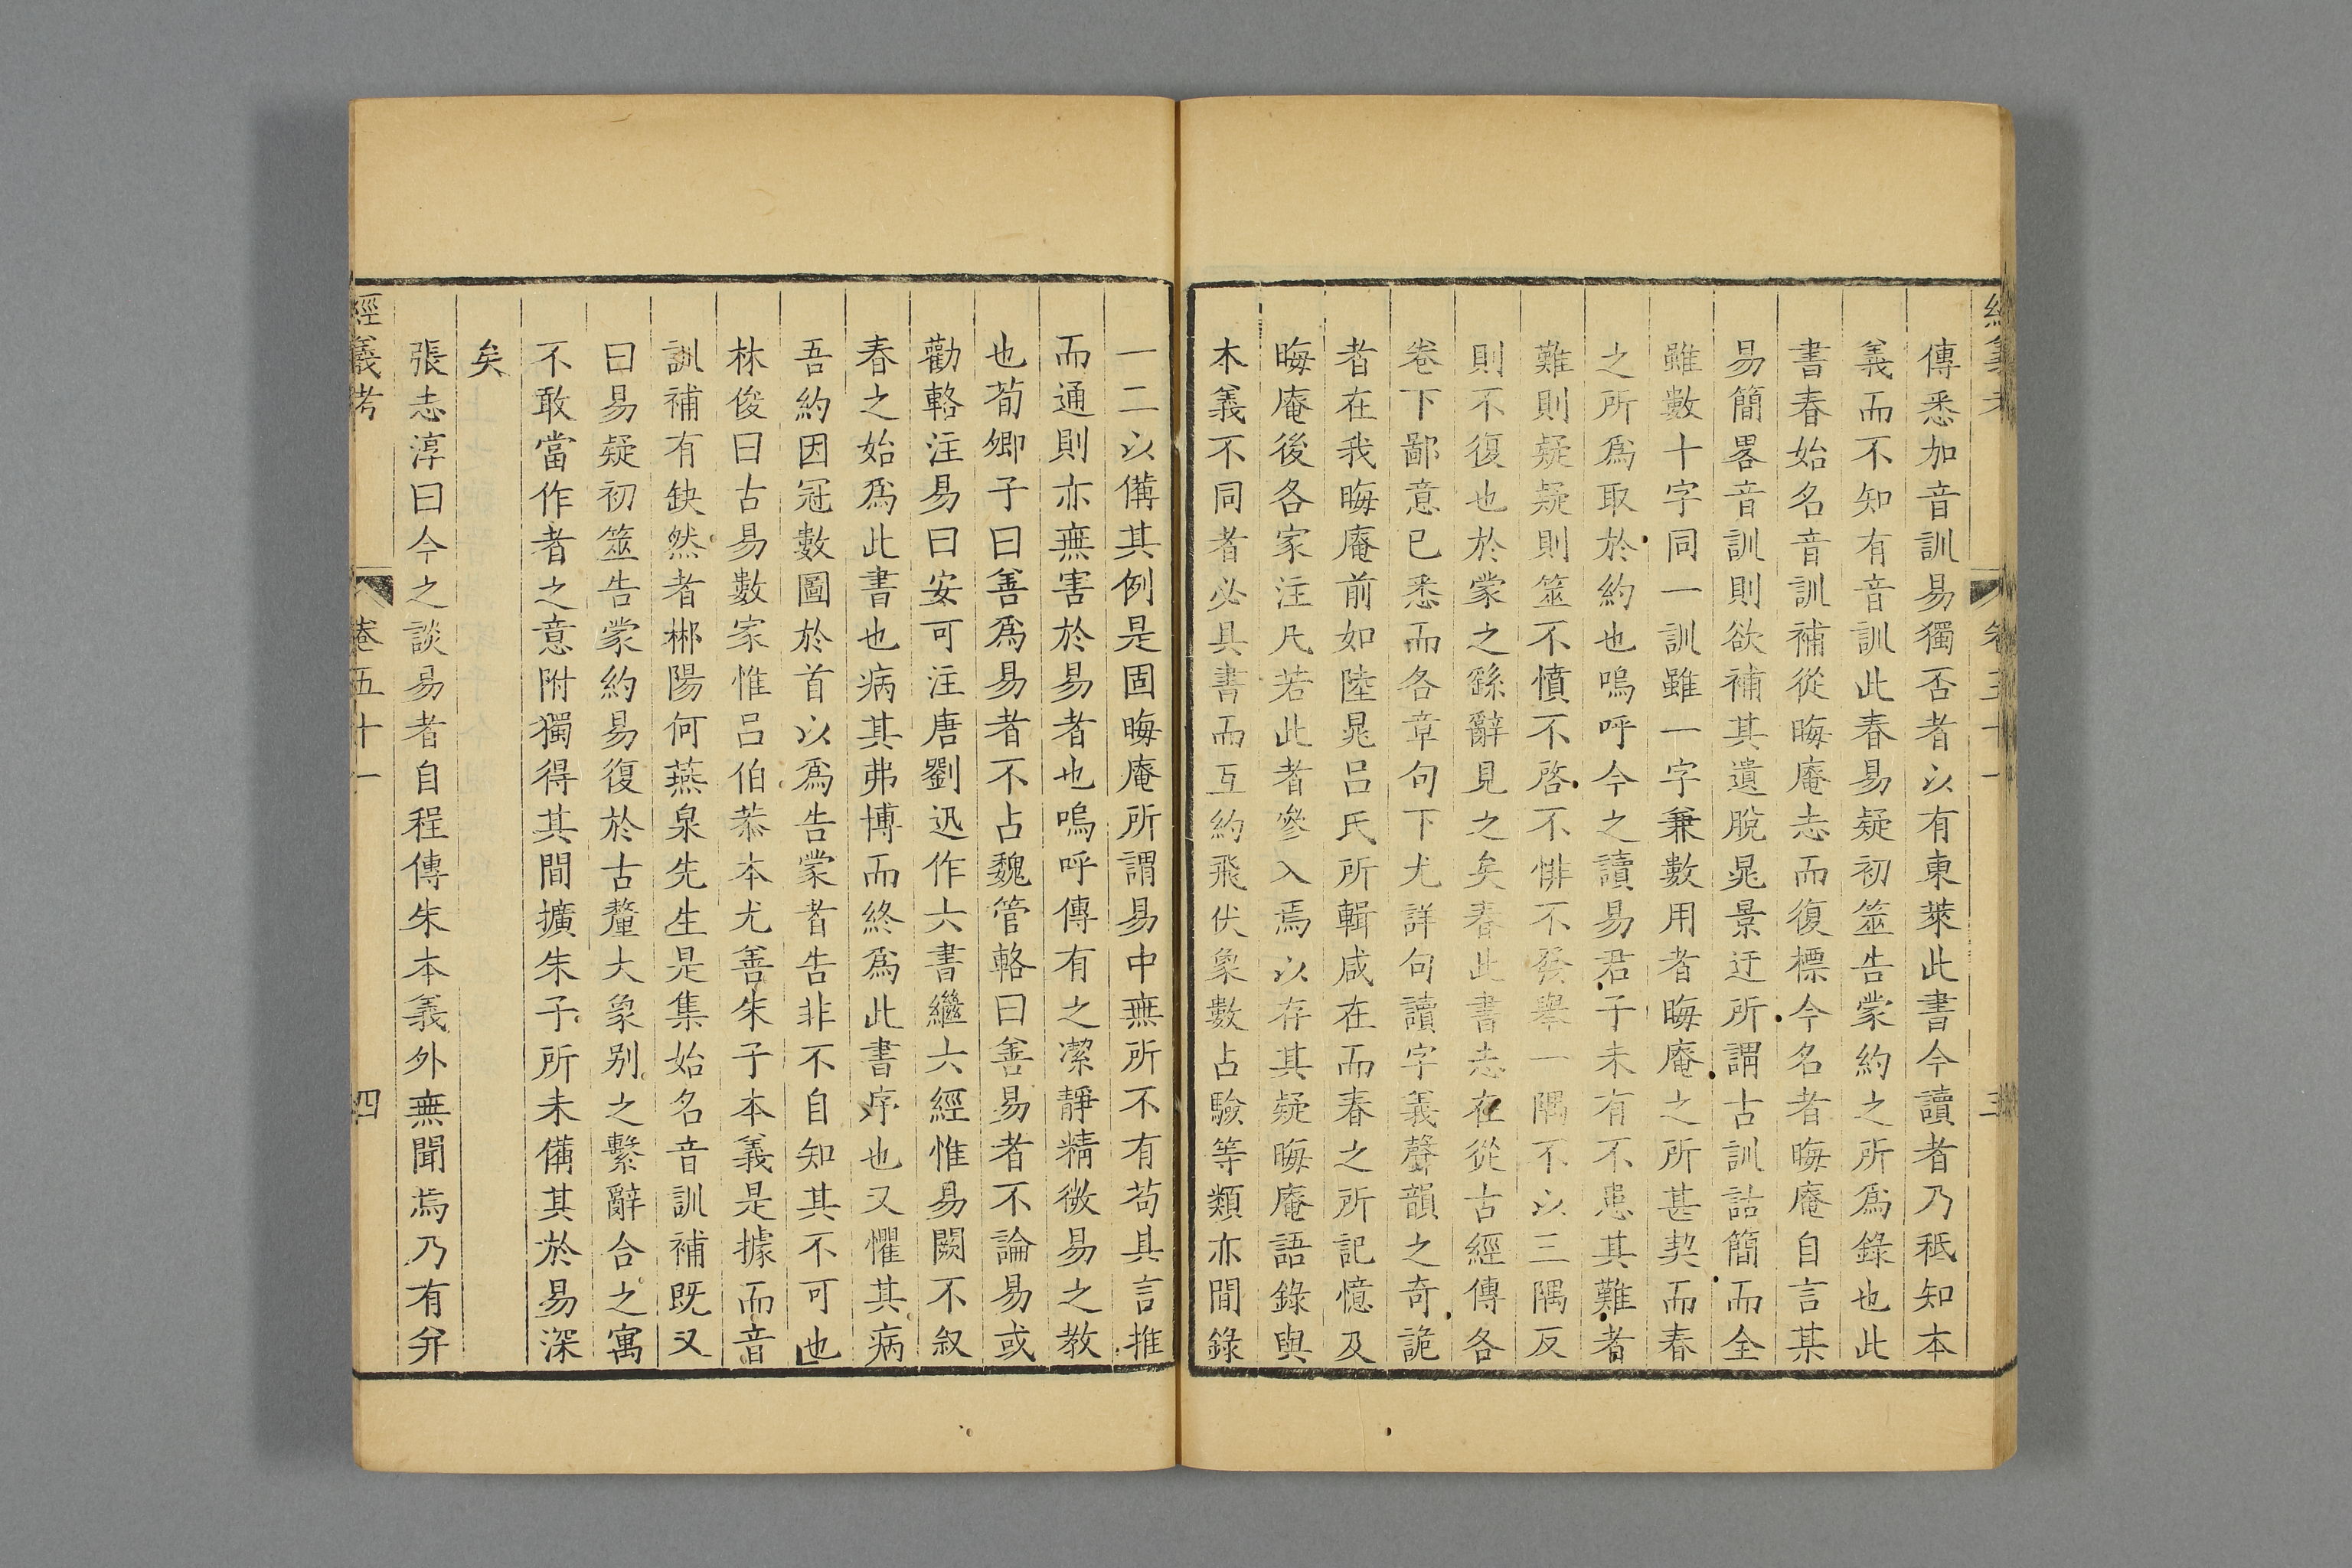 經義考 卷五十一 三
傳悉加音訓易獨否者以有東萊此書今讀者乃秪知本
義而不知有音訓此春易疑初筮告蒙約之所爲錄也此
書春始名音訓補從晦庵志而復標今名者晦庵自言某
易簡畧音訓則欲補其遺脫晁景迂所謂古訓詁簡而全
雖數十字同一訓雖一字兼數用者晦庵之所甚契而春
之所爲取於約也嗚呼今之讀易君子未有不患其難者
難則疑疑則筮不憤不啓不悱不發舉一隅不以三隅反
則不復也於蒙之繇辭見之矣春此書志在從古經傳各
卷下鄙意已悉而各章句下尤詳句讀字義聲韻之奇詭
者在我晦庵前如陸晁呂氏所輯咸在而春之所記憶及
晦庵後各家注凡若此者參入焉以存其疑晦庵語錄與
本義不同者必具書而互約飛伏象數占驗等類亦間錄
一二以備其例是固晦庵所謂易中無所不有苟具言推
而通則亦無害於易者也嗚呼傳有之潔靜精微易之教
也荀卿子曰善爲易者不占魏管輅曰善易者不論易或
勸輅注易曰安可注唐劉迅作六書繼六經惟易闕不叙
春之始爲此書也病其弗博而終爲此書序也又懼其病
吾約因冠數圖於首以爲告蒙者告非不自知其不可也
林俊曰古易數家惟呂伯恭本尤善朱子本義是據而音
訓補有缺然者郴陽何燕泉先生是集始名音訓補既又
曰易疑初筮告蒙約易復於古釐大象别之繫辭合之寓
不敢當作者之意附獨得其間擴朱子所未備其於易深
矣
張志淳曰今之談易者自程傳朱本義外無聞焉乃有弁
經義考 卷五十一 四